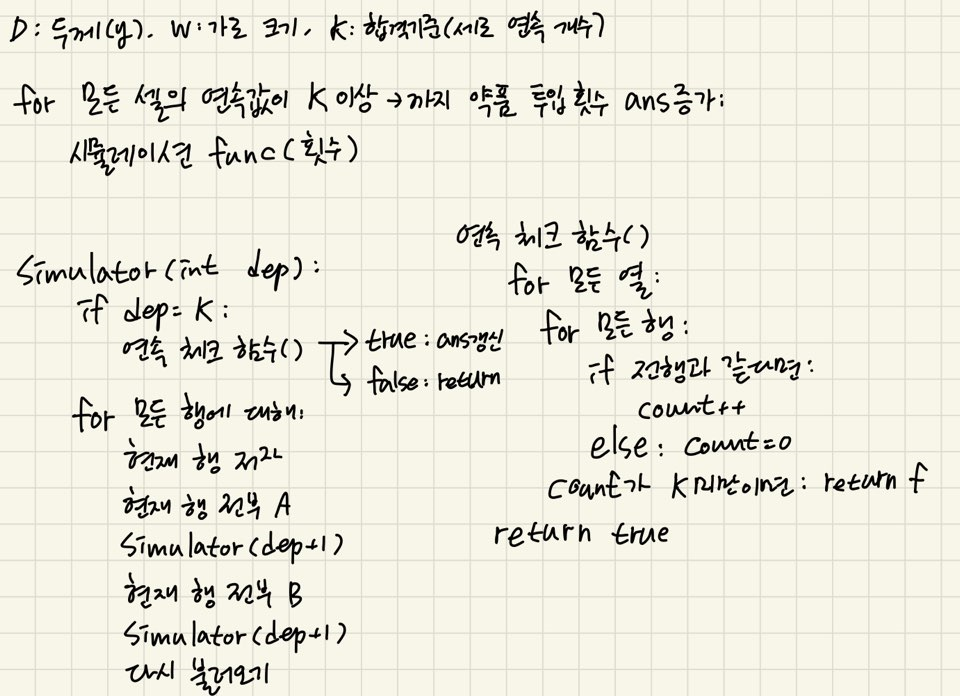 D: 두께(y). W: 가로 크기, K: 합격기준(세로 연속 개수)
for 모든 셀의 연속값이 K 이상 → 까지 약품 투입 횟수 ans증가:
시뮬레이션 func(횟수)
Simulator(int dep):
if dep= K:
연속 체크 함수() → true: ans갱신
↳ false: return
for 모든 행에 대해:
현재 행 저장
현재 행 전부 A
Simulator(dep+1)
현재 행 전부 B
Simulator(dep+1)
다시 불러오기
연속 체크 함수()
for 모든 열:
for 모든 행:
if 전행과 같다면:
count++
else: count=0
count가 K미만이면: return f
return true